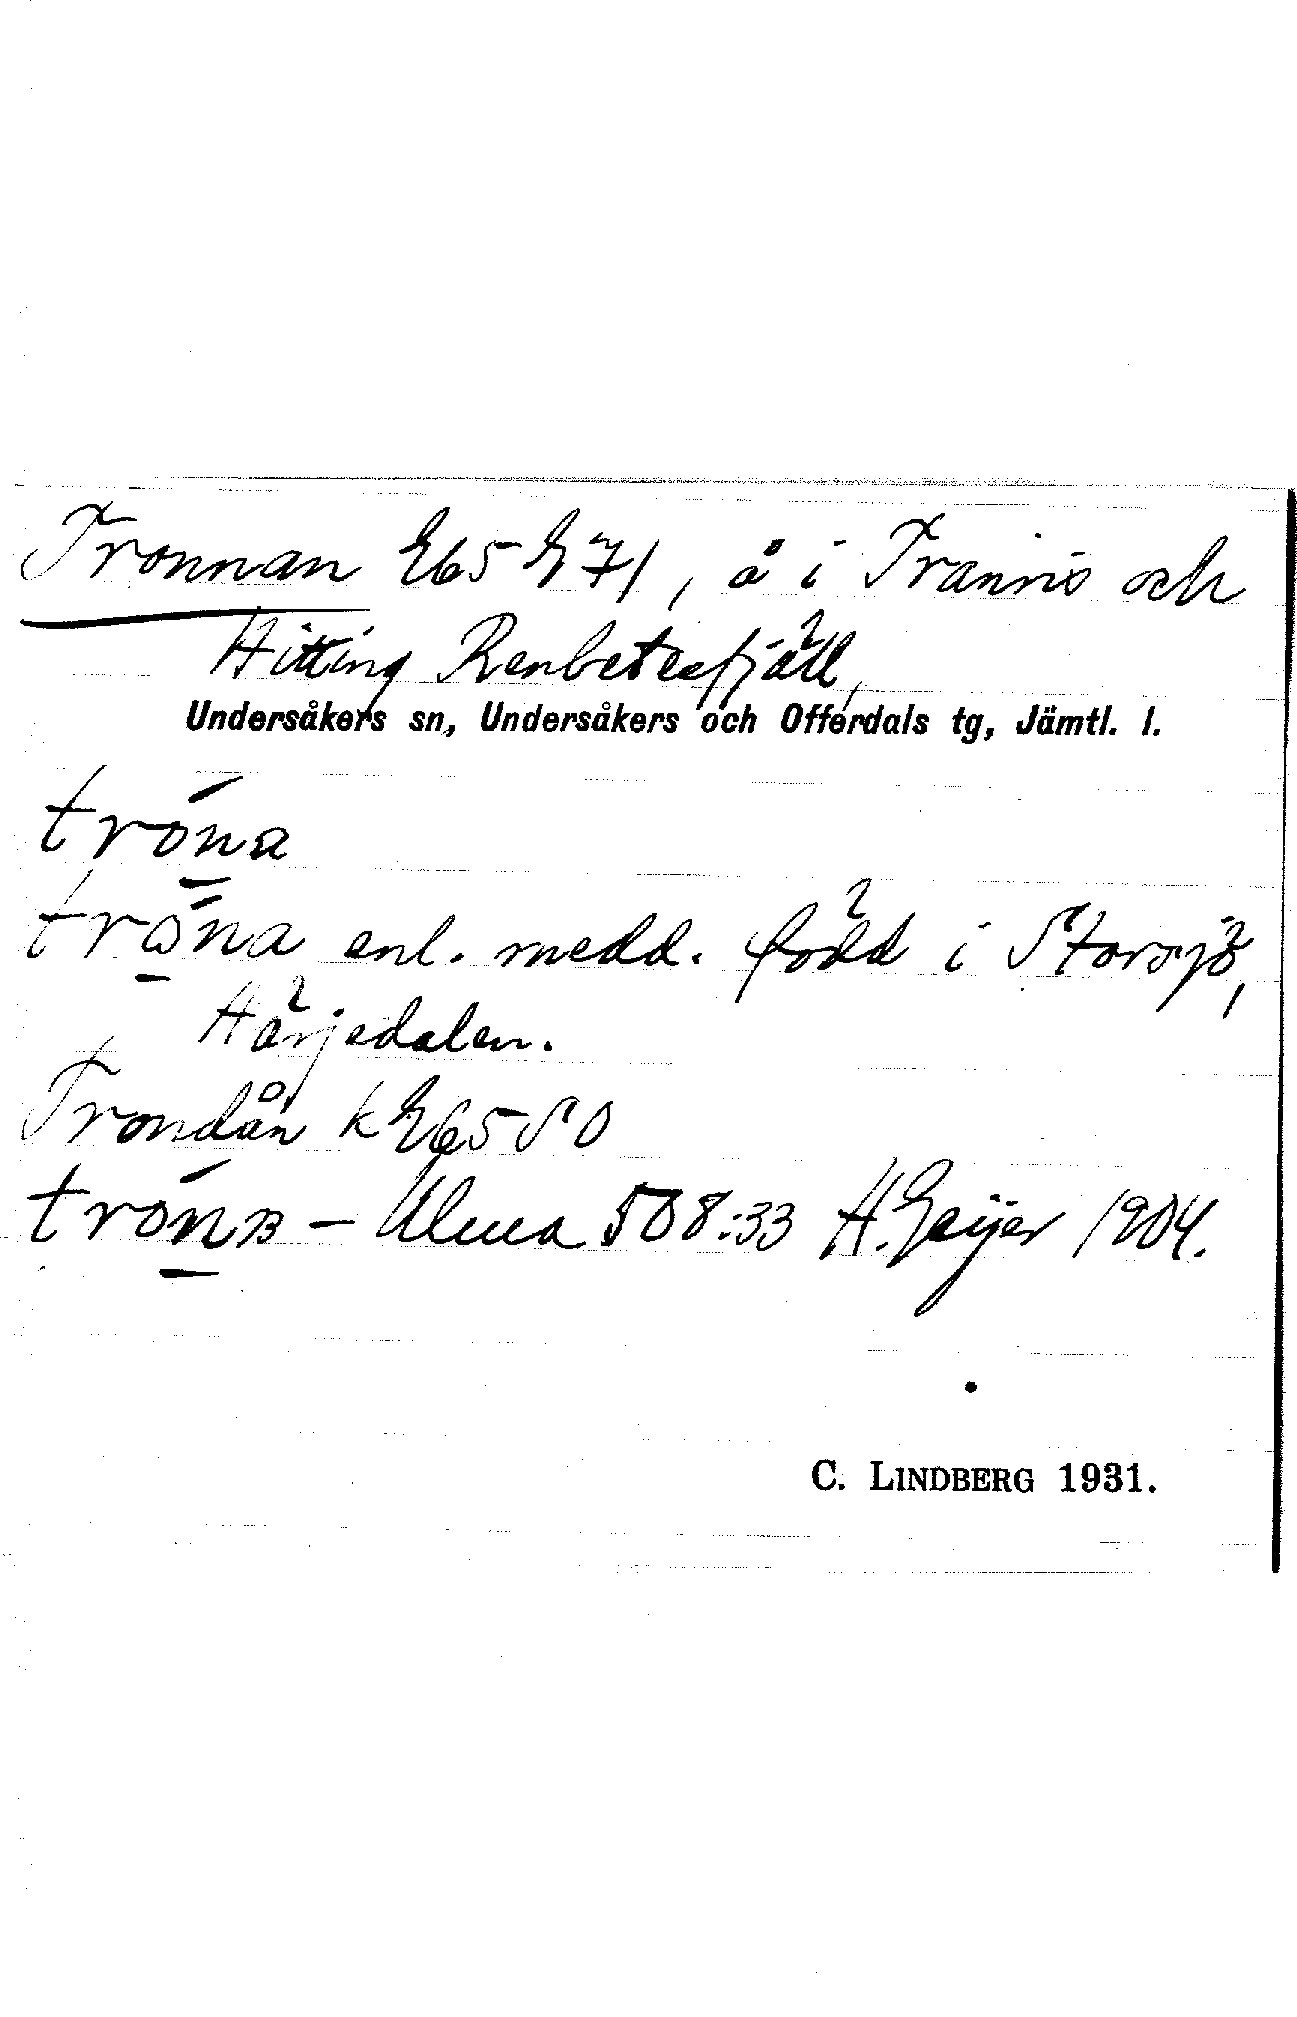 Tronnan G65 G71, å i Tranris och
Hitting Renbetesfjäll,
Undersåkers sn, Undersåkers och Offerdals tg, Jämtl. l.
tróna
tróna enl. medd. född i Storsjö,
Härjedalen.
Trondån k G65 SO
trónɴ – Ulma 508:33 H. Geijer 1904.
C. LINDBERG 1931.